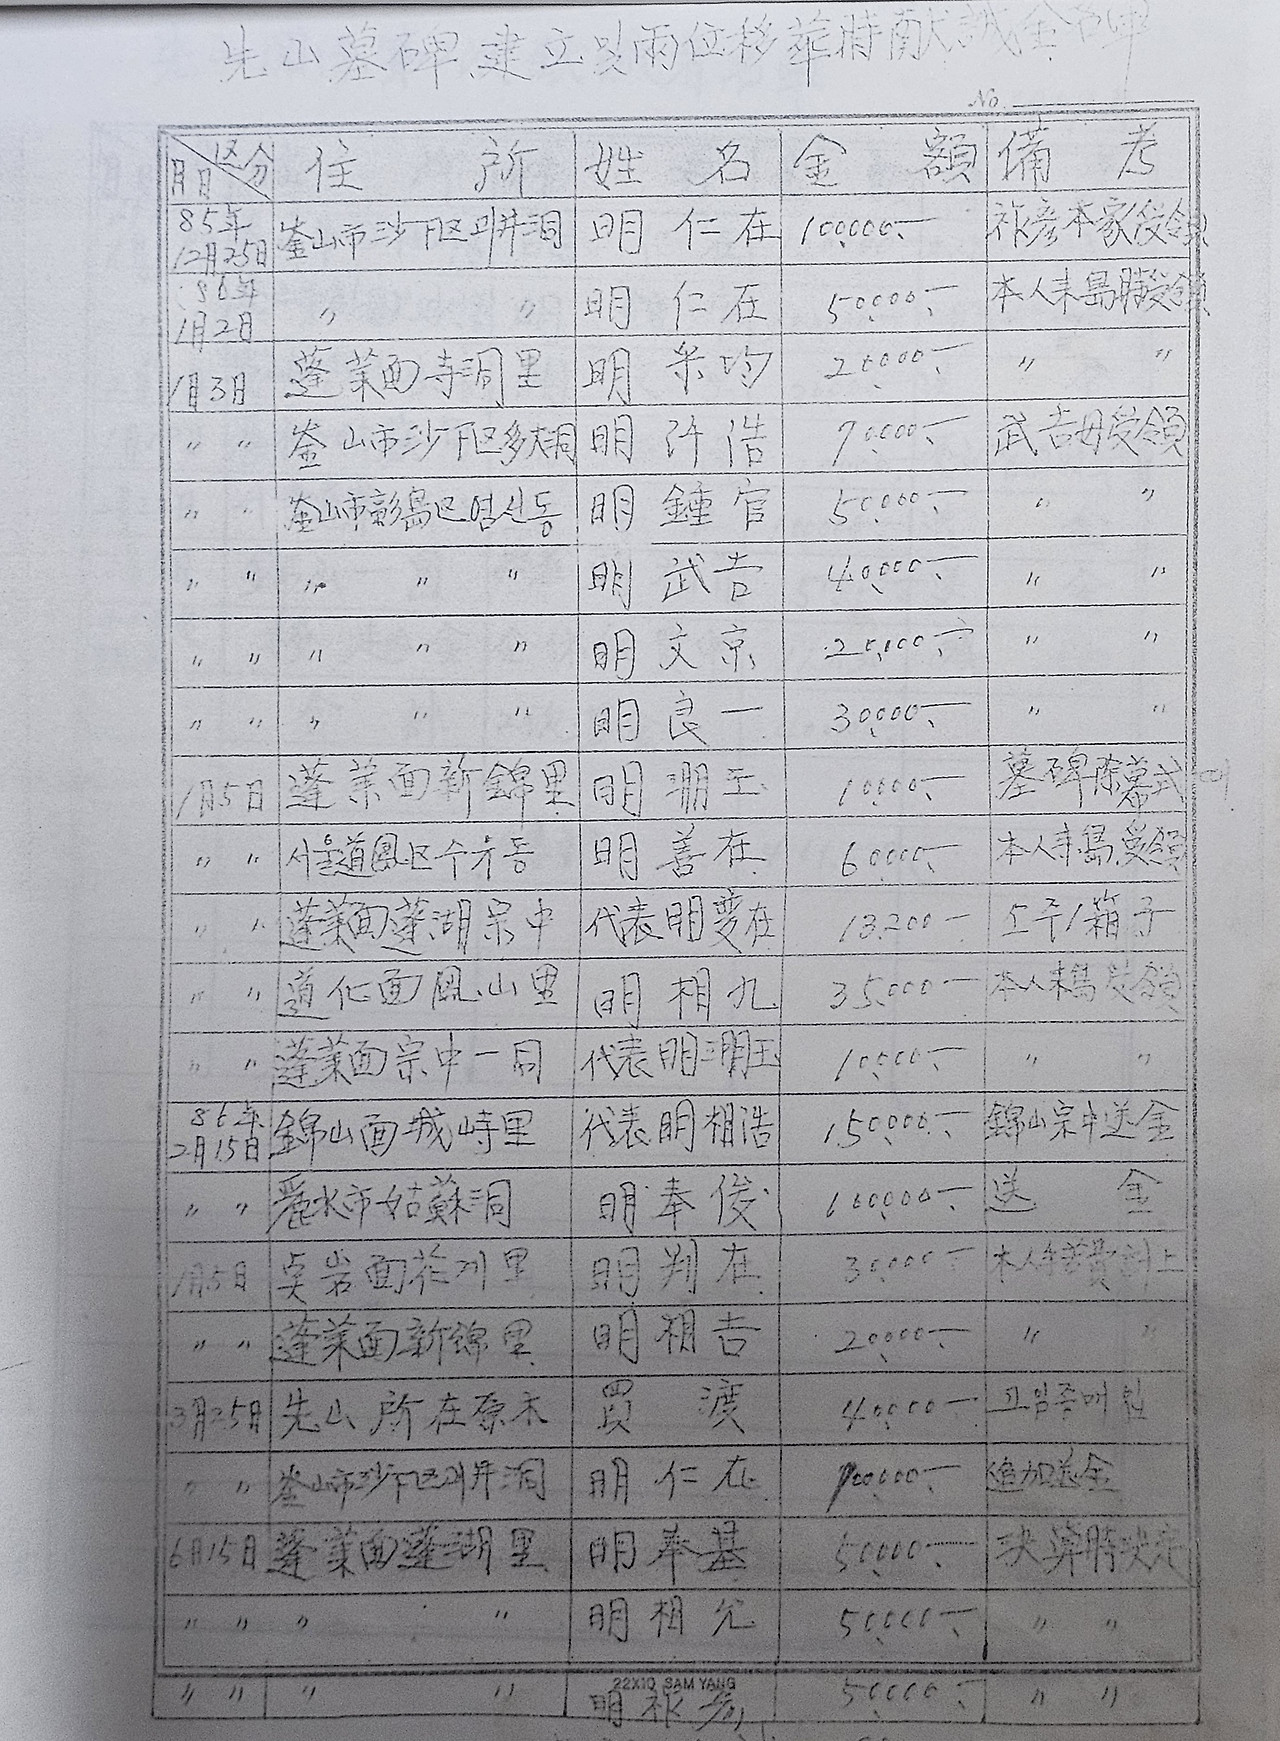 先山墓碑建立 兩位移葬時献誠金
No.
区分 月日 住所 姓名 金額 備考
85年12月25日 釜山市沙下区괴井洞 明仁在 100,000- 本家受領
86年1月2日 〃 〃 明仁在 50,000- 本人来島時受領
1月3日 蓬莱面寺洞里 明 均 20,000- 〃 〃
〃 〃 釜山市沙下区多大洞 明 浩 70,000- 武吉母受領
〃 〃 釜山市影島区영선동 明鍾官 50,000- 〃 〃
〃 〃 〃 〃 〃 明武吉 40,000- 〃 〃
〃 〃 〃 〃 〃 明文京 20,000- 〃 〃
〃 〃 〃 〃 〃 明良一 30,000- 〃 〃
1月5日 蓬莱面新錦里 明 玉 10,000- 墓碑除幕式
〃 〃 서울 区 동 明善在 60,000- 本人来島受領
〃 〃 蓬莱面蓬湖宗中 代表明 在 13,200- 1箱子
〃 〃 道化面鳳山里 明相九 35,000- 本人来島受領
〃 〃 蓬莱面宗中一同 代表明 玉 10,500- 〃 〃
86年2月15日 錦山面 里 代表明相浩 150,000- 錦山宗中送金
〃 〃 麗水市姑蘇洞 明奉俊 100,000- 送金
1月5日 岩面 里 明判在 30,000- 本人 上
〃 〃 蓬莱面新錦里 明相吉 20,000- 〃 〃
3月25日 先山所在原木 買渡 40,000-
〃 〃 釜山市沙下区괴井洞 明仁在 00,000- 追加送金
6月15日 蓬莱面蓬湖里 明奉基 50,000- 決算時決定
〃 〃 〃 〃 明相允 50,000- 〃 〃
22X10 SAM YANG
〃 〃 〃 〃 明 50,000- 〃 〃